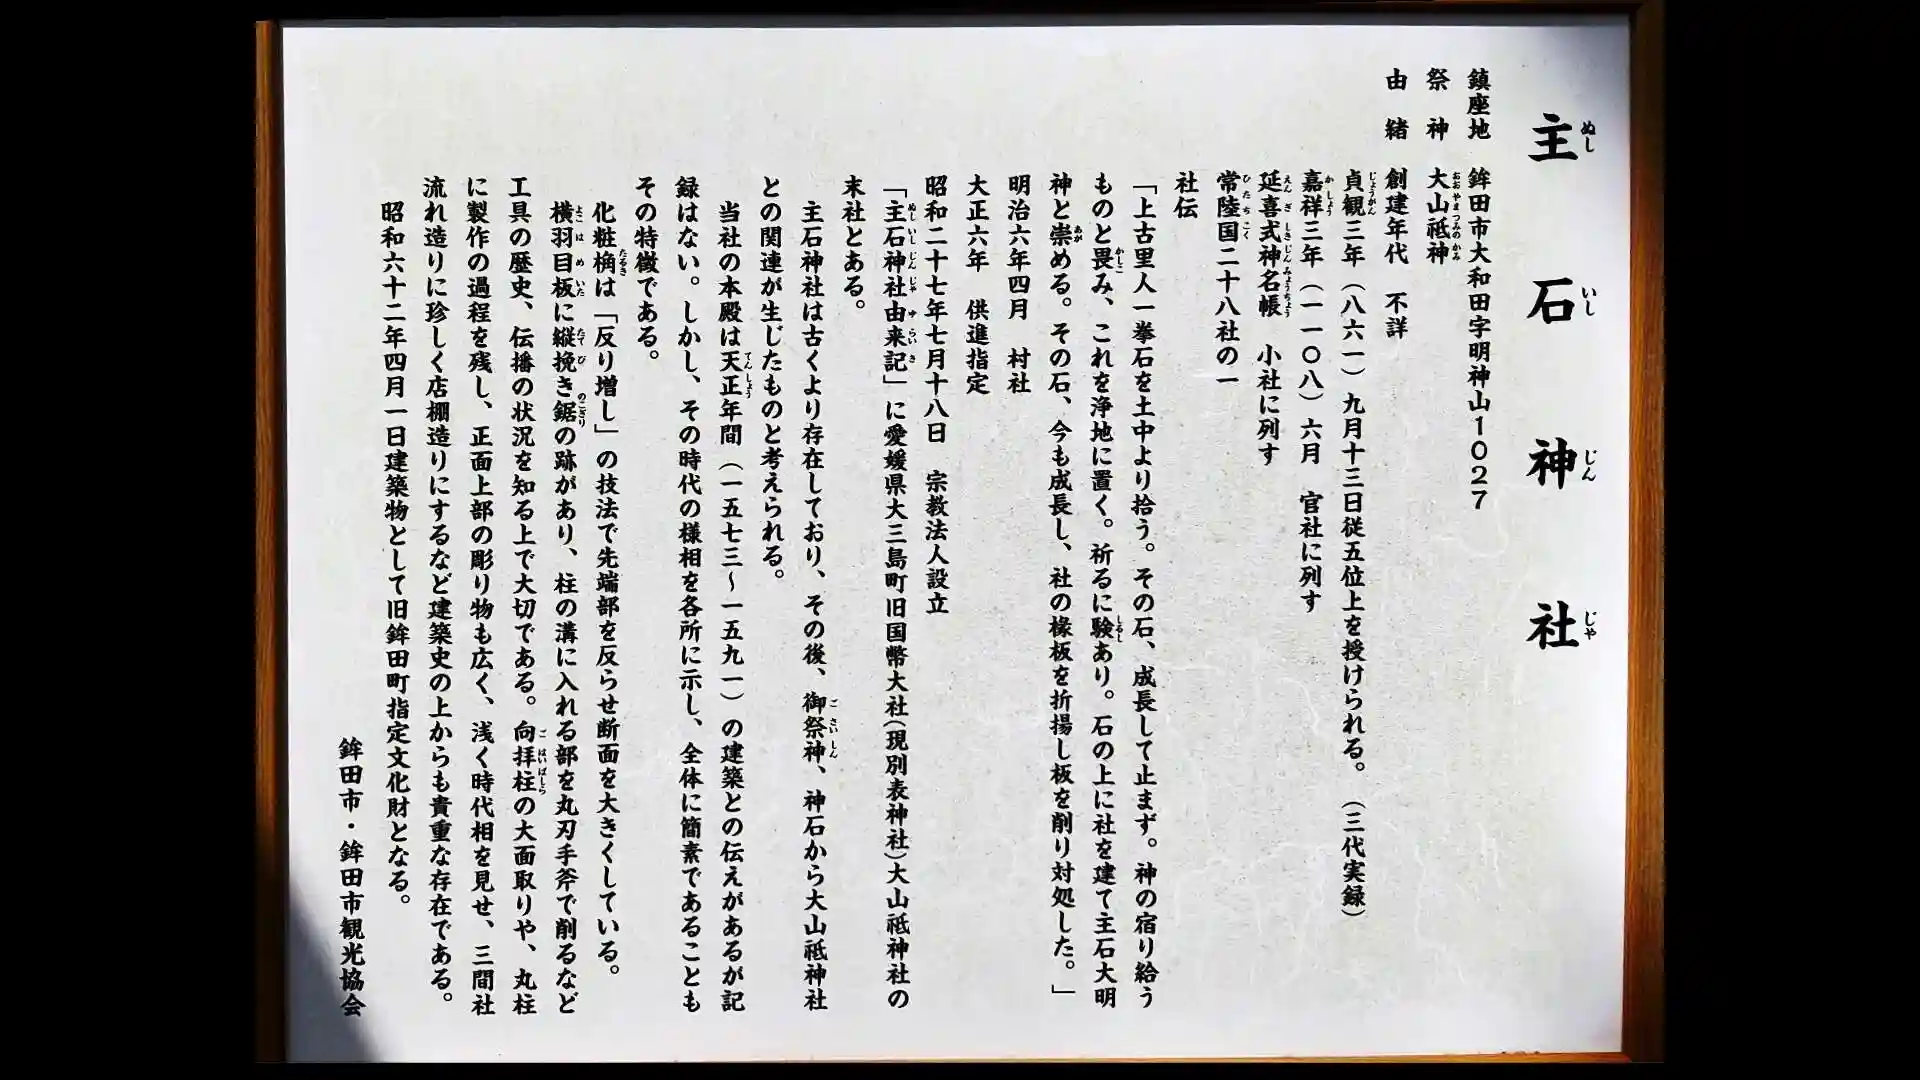 主石神社
鎮座地 鉾田市大和田字明神山1027
祭神 大山祗神
由緒 創建年代 不詳
貞観三年（八六一）九月十三日従五位上を授けられる。（三代実録）
嘉祥三年（一一〇八）六月 官社に列す
延喜式神名帳 小社に列す
常陸国二十八社の一
社伝
「上古里人一拳石を土中より拾う。その石、成長して止まず。神の宿り給う
ものと畏み、これを浄地に置く。祈るに験あり。石の上に社を建て主石大明
神と崇める。その石、今も成長し、社の椽板を折揚し板を削り対処した。」
明治六年四月 村社
大正六年 供進指定
昭和二十七年七月十八日 宗教法人設立
「主石神社由来記」に愛媛県大三島町旧国幣大社(現別表神社)大山祗神社の
末社とある。
主石神社は古くより存在しており、その後、御祭神、神石から大山祗神社
との関連が生じたものと考えられる。
当社の本殿は天正年間（一五七三～一五九一）の建築との伝えがあるが記
録はない。しかし、その時代の様相を各所に示し、全体に簡素であることも
その特徴である。
化粧桷は「反り増し」の技法で先端部を反らせ断面を大きくしている。
横羽目板に縦挽き鋸の跡があり、柱の溝に入れる部を丸刃手斧で削るなど
工具の歴史、伝播の状況を知る上で大切である。向拝柱の大面取りや、丸柱
に製作の過程を残し、正面上部の彫り物も広く、浅く時代相を見せ、三間社
流れ造りに珍しく店棚造りにするなど建築史の上からも貴重な存在である。
昭和六十二年四月一日建築物として旧鉾田町指定文化財となる。
鉾田市・鉾田市観光協会